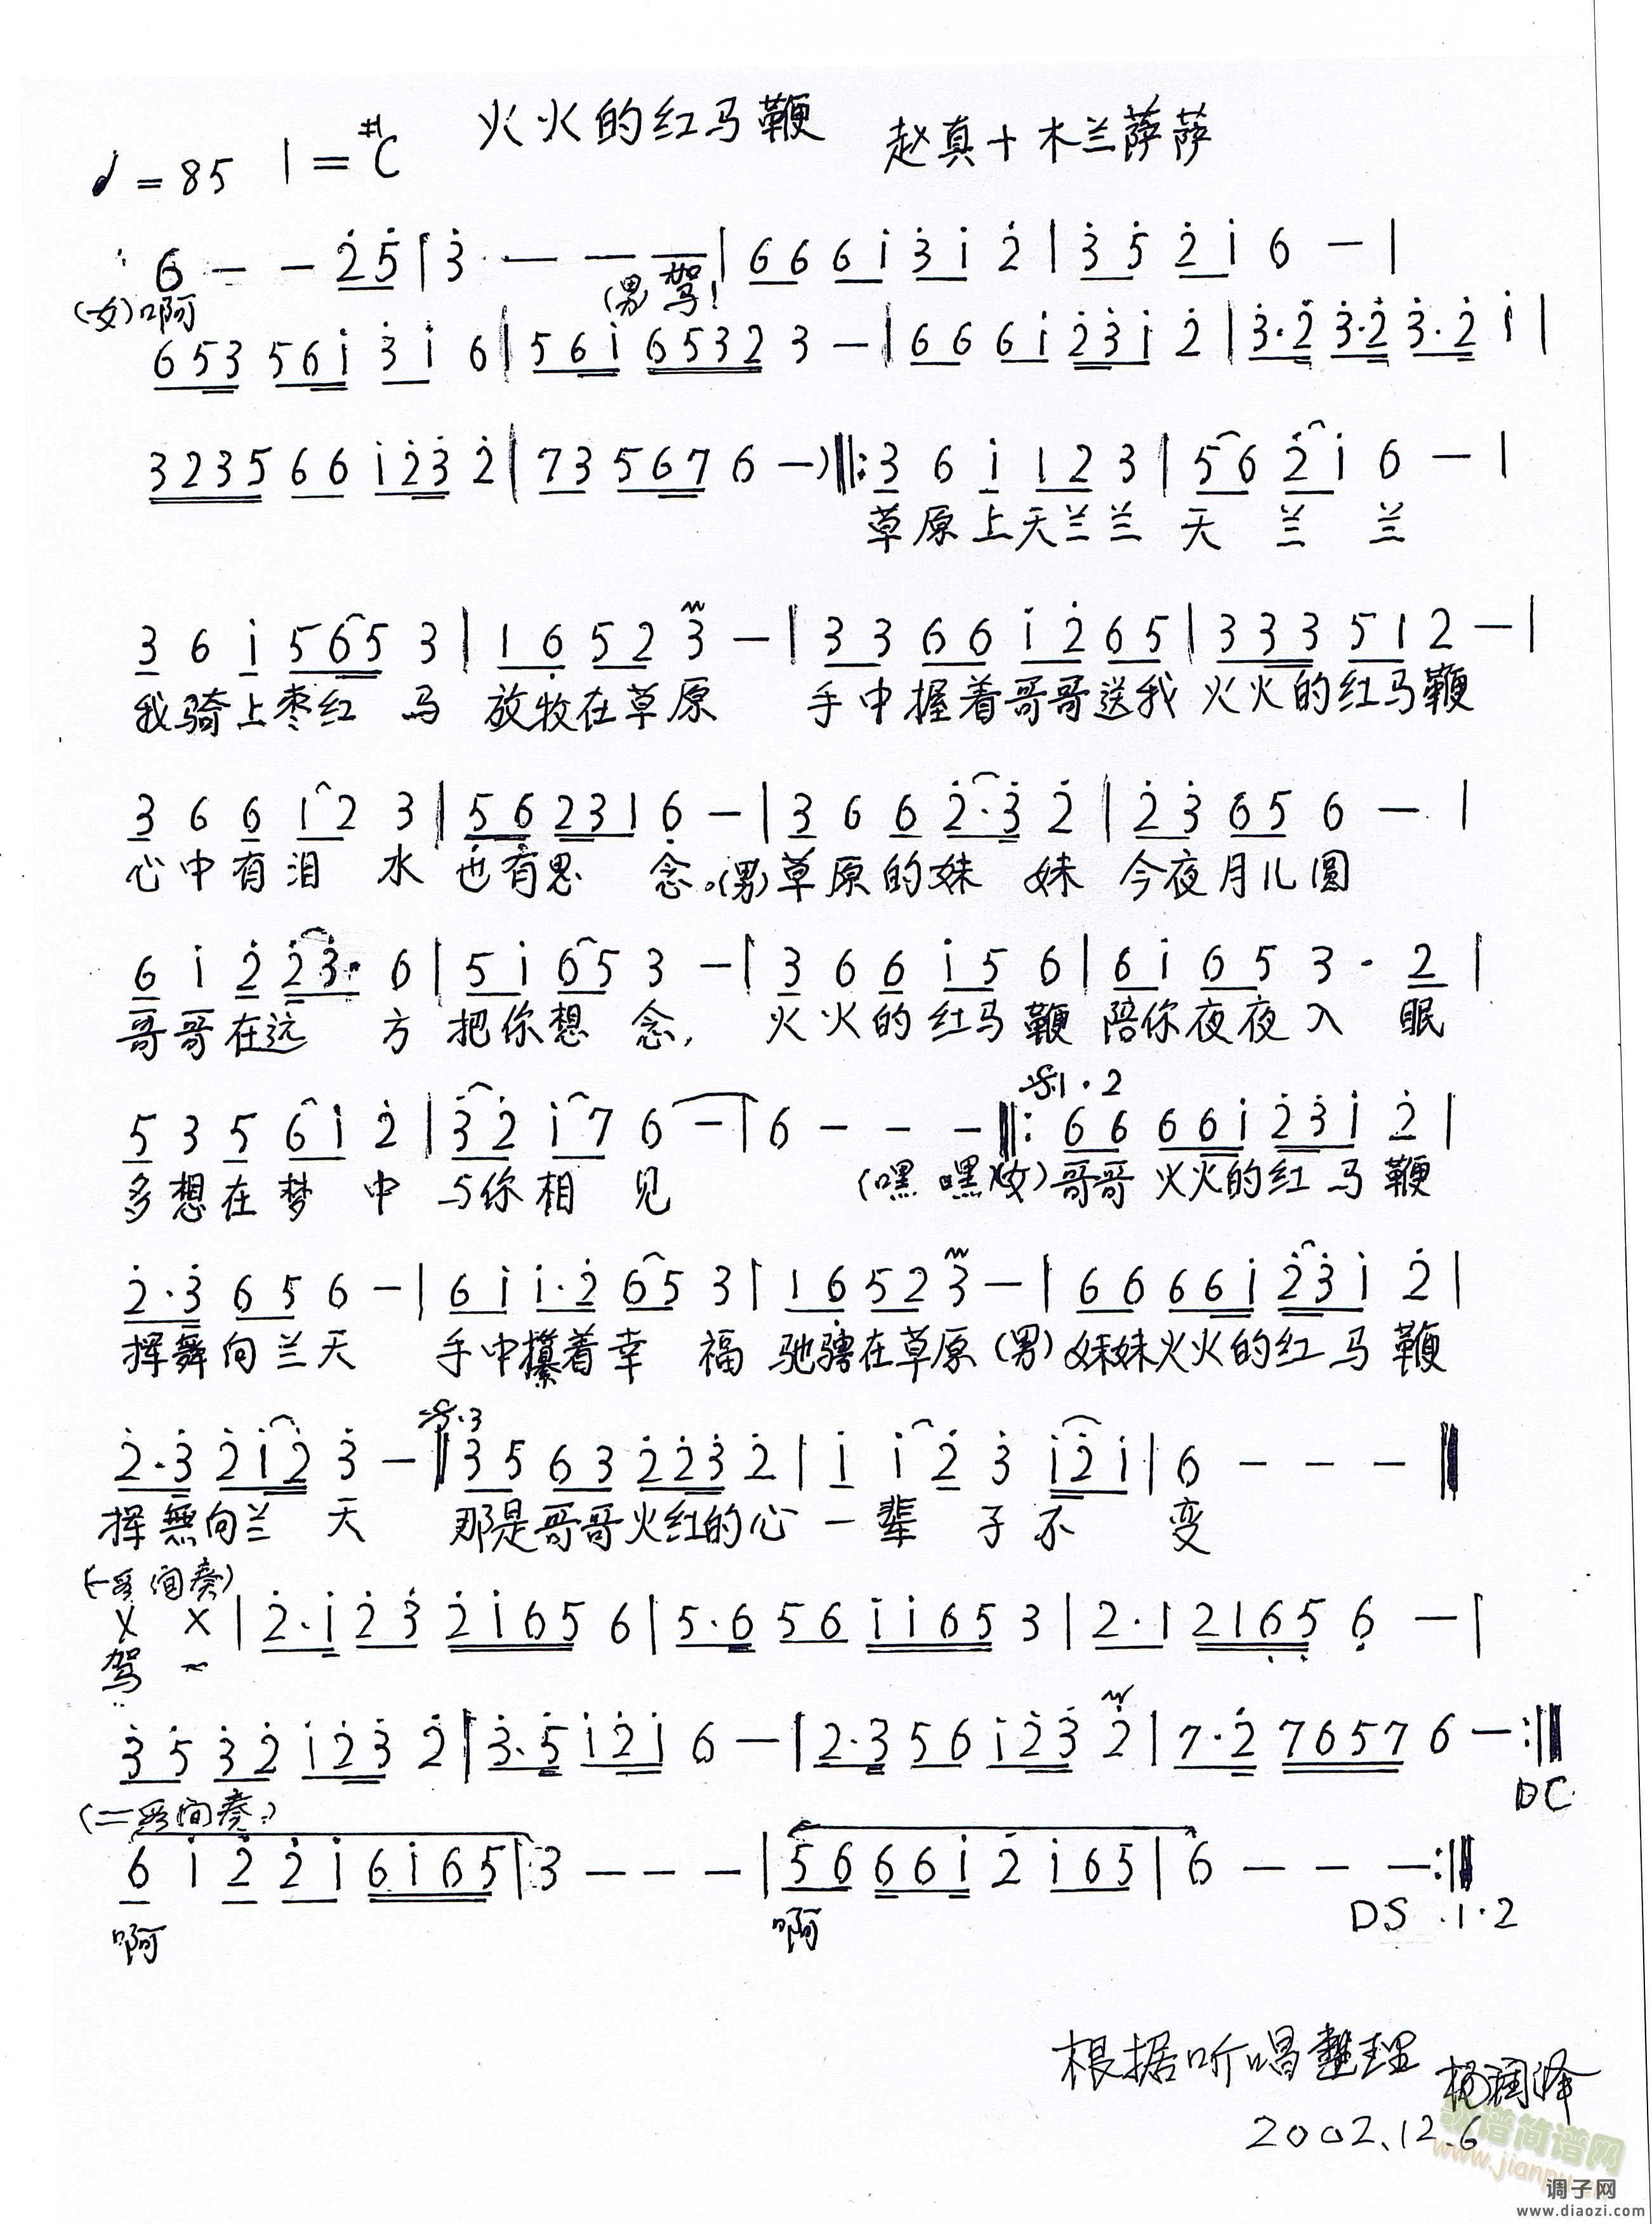 火火的红马鞭 赵真+木兰萨萨
♩=85 1=#C
6 - - 2̇5̇ | 3̇ - - - | 6 6 6 i 3̇ i 2̇ | 3̇ 5̇ 2̇ i 6 - |
(女)啊 (男)驾!
6 5 3 5 6 i 3̇ i 6 | 5 6 i 6 5 3 2 3 - | 6 6 6 i 2̇ 3̇ i 2̇ | 3̇·2̇ 3̇·2̇ 3̇·2̇ i |
3 2 3 5 6 6 i 2̇ 3̇ 2̇ | 7 3 5 6 7 6 -) ‖: 3 6 i 1 2 3 | 5 6 2̇ i 6 - |
草原上天兰兰 天 兰 兰
3 6 i 5 6 5 3 | 1 6̣ 5 2 3 - | 3 3 6 6 i 2̇ 6 5 | 3 3 3 5 1 2 - |
我骑上枣红 马 放牧在草原 手中握着哥哥送我 火火的红马鞭
3 6 6 1 2 3 | 5̣ 6̣ 2 3 1 6̣ - | 3 6 6 2̇·3̇ 2̇ | 2̇ 3̇ 6 5 6 - |
心中有泪 水 也有思 念。(男)草原的妹 妹 今夜月儿圆
6 i 2̇ 2̇ 3̇· 6 | 5 i 6 5 3 - | 3 6 6 i 5 6 | 6 i 6 5 3 · 2 |
哥哥在远 方 把你想 念, 火火的红马 鞭 陪你夜夜入 眠
𝄋1·2
5 3 5 6 i 2̇ | 3̇ 2̇ i 7 6 - | 6 - - - ‖: 6 6 6 6 i 2̇ 3̇ i 2̇ |
多想在梦 中 与你相 见 (嘿 嘿 女)哥哥 火火的红 马 鞭
2̇·3̇ 6 5 6 - | 6 i i·2̇ 6 5 3 | 1 6̣ 5 2 3 - | 6 6 6 6 i 2̇ 3̇ i 2̇ |
挥舞向兰天 手中攥着幸 福 驰骋在草原 (男)妹妹火火的红 马 鞭
𝄋·3
2̇·3̇ 2̇ i 2̇ 3̇ - ‖ 3̇ 5 6 3 2̇ 2̇ 3̇ 2̇ | i i 2̇ 3̇ i 2̇ i | 6 - - - ‖
挥舞向兰 天 那是哥哥火红的心 一 辈 子 不 变
(一段间奏)
X X | 2̇·i 2̇ 3̇ 2̇ i 6 5 6 | 5·6 5 6 i i 6 5 3 | 2·1 2 1 6̣ 5̣ 6̣ - |
驾 ~
3̇ 5̇ 3̇ 2̇ i 2̇ 3̇ 2̇ | 3̇·5̇ i 2̇ i 6 - | 2·3 5 6 i 2̇ 3̇ 2̇ | 7·2̇ 7 6 5 7 6 - :‖
DC
(二段间奏)
6 i 2̇ 2̇ i 6 i 6 5 | 3 - - - | 5 6 6 6 i 2̇ i 6 5 | 6 - - - :‖
啊 啊 DS .1·2
根据听唱整理 杨润泽
2002.12.6
歌谱简谱网
www.jianpu.cn
调子网
www.diaozi.com